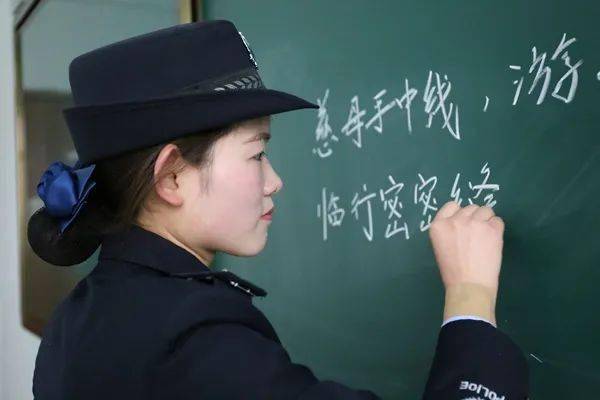 慈母手中线，游
临行密密
POLICE